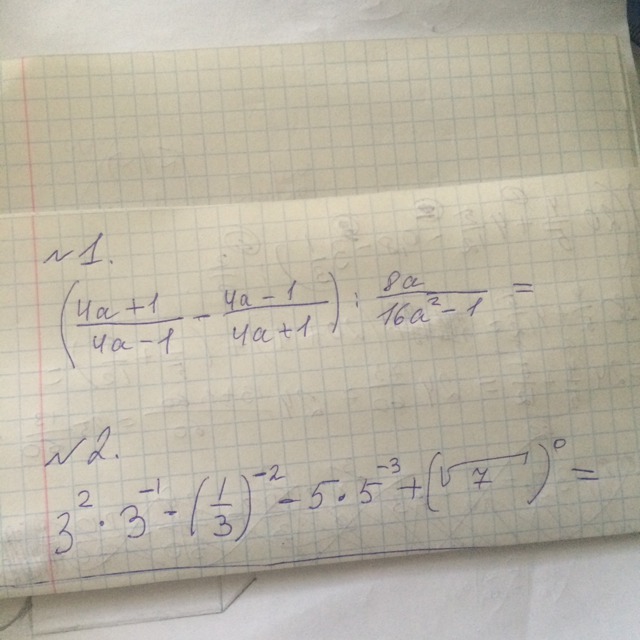 №1.
(4a+1/4a-1 - 4a-1/4a+1) : 8a/16a²-1 =
№2.
3² · 3⁻¹ - (1/3)⁻² - 5 · 5⁻³ + (√7)⁰ =